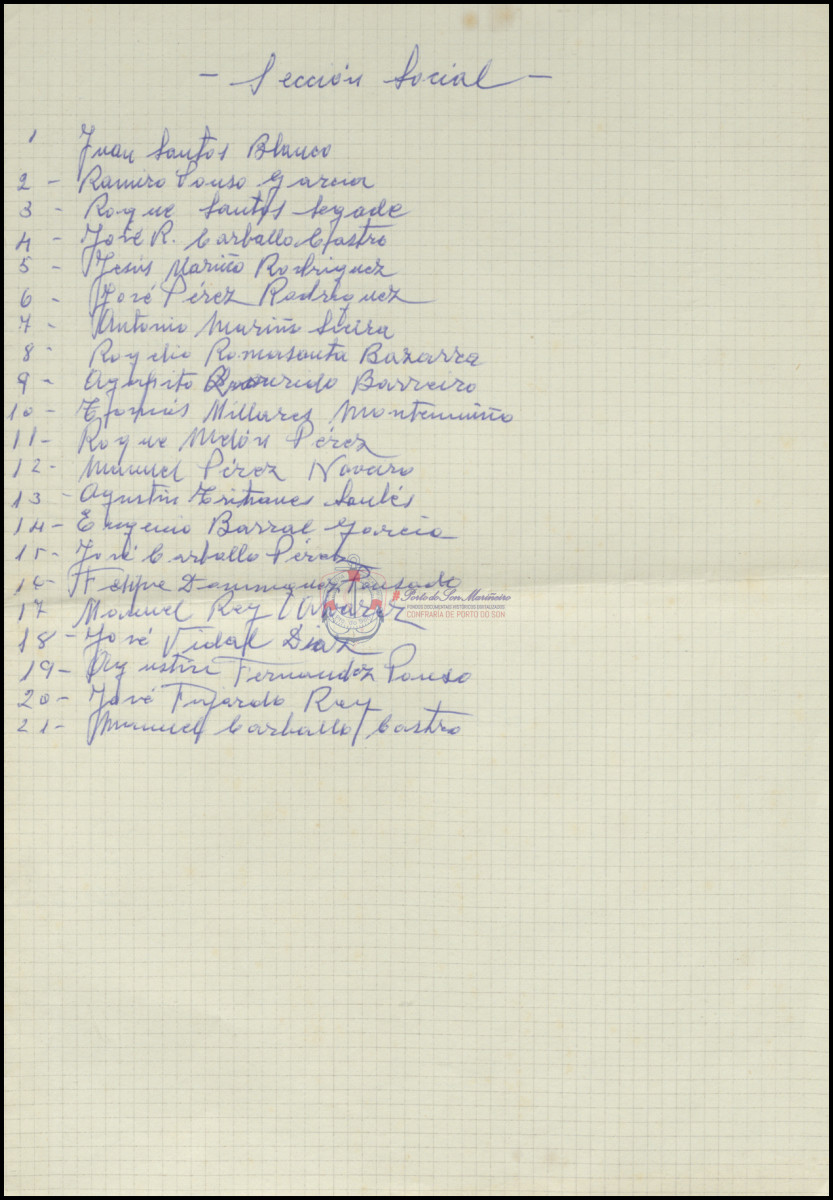 - Sección Social -
1 Juan Santos Blanco
2 - Ramiro Pouso Garcia
3 - Roque Santos Segade
4 - José R. Carballo Castro
5 - Jesús Mariño Rodriguez
6 - José Pérez Rodriguez
7 - Antonio Mariño Sieira
8 - Rogelio Romasanta Bazarra
9 - Agapito Barreiro
10 - Tomás Millares Montemuiño
11 - Roque Melón Pérez
12 - Manuel Pérez Navarro
13 - Agustin
14 - Eugenio Barral Garcia
15 - José Carballo Pérez
16 - Felipe Dominguez Pousada
17 Manuel Rey Alvarez
18 - José Vidal Diaz
19 - Agustin Fernandez Pouso
20 - José Fajardo Rey
21 - Manuel Carballo Castro
#Porto do Son Mariñeiro
FONDOS DOCUMENTAIS HISTÓRICOS DIXITALIZADOS
CONFRARÍA DE PORTO DO SON